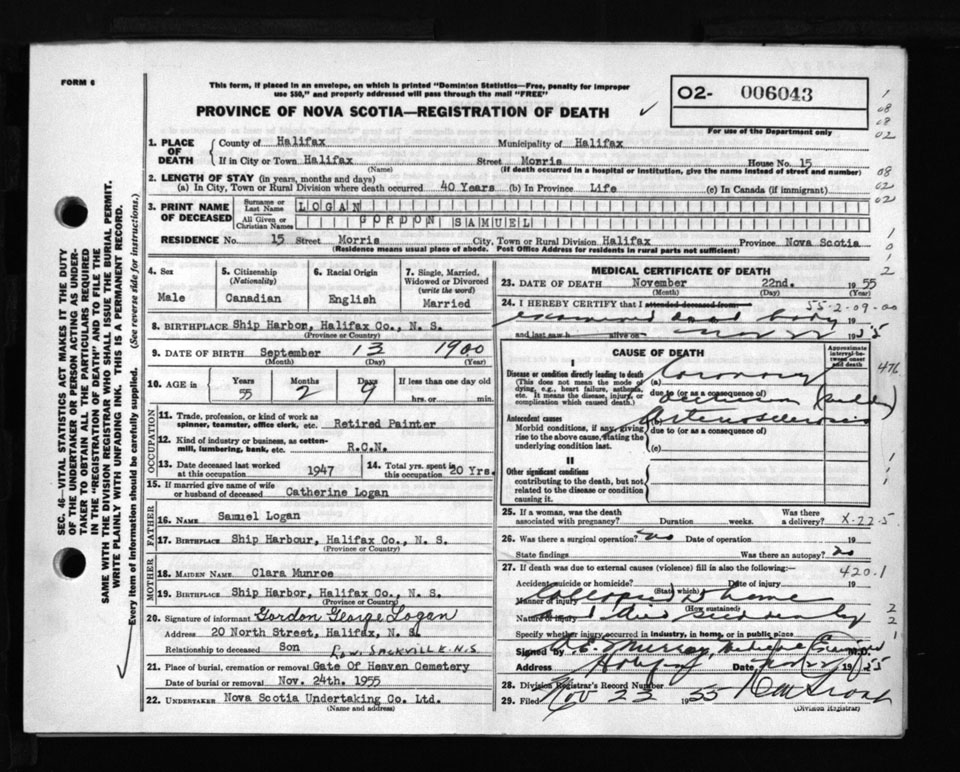 FORM 6
This form, if placed in an envelope, on which is printed "Dominion Statistics—Free, penalty for improper
use $50," and properly addressed will pass through the mail "FREE"
PROVINCE OF NOVA SCOTIA—REGISTRATION OF DEATH
O2- 006043
For use of the Department only
1. PLACE OF DEATH
County of Halifax Municipality of Halifax
If in City or Town Halifax Street Morris House No. 15
(Name) (If death occurred in a hospital or institution, give the name instead of street and number)
2. LENGTH OF STAY (in years, months and days)
(a) In City, Town or Rural Division where death occurred 40 Years (b) In Province Life (c) In Canada (if immigrant)
3. PRINT NAME OF DECEASED
Surname or Last Name LOGAN
All Given or Christian Names GORDON SAMUEL
RESIDENCE No. 15 Street Morris City, Town or Rural Division Halifax Province Nova Scotia
(Residence means usual place of abode. Post Office Address for residents in rural parts not sufficient)
4. Sex Male
5. Citizenship (Nationality) Canadian
6. Racial Origin English
7. Single, Married, Widowed or Divorced (write the word) Married
8. BIRTHPLACE Ship Harbor, Halifax Co., N. S.
(Province or Country)
9. DATE OF BIRTH September 13 1900
(Month) (Day) (Year)
10. AGE in Years 55 Months 2 Days 9 If less than one day old hrs. or min.
OCCUPATION
11. Trade, profession, or kind of work as spinner, teamster, office clerk, etc. Retired Painter
12. Kind of industry or business, as cotten-mill, lumbering, bank, etc. R.C.N.
13. Date deceased last worked at this occupation 1947
14. Total yrs. spent in this occupation 20 Yrs.
15. If married give name of wife or husband of deceased Catherine Logan
FATHER
16. NAME Samuel Logan
17. BIRTHPLACE Ship Harbour, Halifax Co., N. S.
(Province or Country)
MOTHER
18. MAIDEN NAME Clara Munroe
19. BIRTHPLACE Ship Harbor, Halifax Co., N. S.
(Province or Country)
20. Signature of informant Gordon George Logan
Address 20 North Street, Halifax, N. S.
Relationship to deceased Son Low. SACKVILLE N.S.
21. Place of burial, cremation or removal Gate Of Heaven Cemetery
Date of burial or removal Nov. 24th. 1955
22. UNDERTAKER Nova Scotia Undertaking Co. Ltd.
(Name and address)
MEDICAL CERTIFICATE OF DEATH
23. DATE OF DEATH November 22nd. 1955
(Month) (Day) (Year)
55-2-09-00
24. I HEREBY CERTIFY that I attended deceased from
examined dead body 19
and last saw h alive on Nov 22 1955
CAUSE OF DEATH
Approximate interval between onset and death
I
Disease or condition directly leading to death
(This does not mean the mode of dying, e.g., heart failure, asthenia, etc. It means the disease, injury, or complication which caused death.)
(a) Coronary
due to (or as a consequence of)
occlusion (sudden)
Antecedent causes
Morbid conditions, if any, giving rise to the above cause, stating the underlying condition last.
Arteriosclerosis
due to (or as a consequence of)
(c)
II
Other significant conditions
contributing to the death, but not related to the disease or condition causing it.
25. If a woman, was the death associated with pregnancy? Duration weeks. Was there a delivery?
X-22-5
26. Was there a surgical operation? no Date of operation 19
State findings Was there an autopsy? no
27. If death was due to external causes (violence) fill in also the following:—
420.1
Accident, suicide or homicide? Date of injury 19
(State which)
Manner of injury Collapsed at home
(How sustained)
Nature of injury and died suddenly
Specify whether injury occurred in industry, in home, or in public place
Signed by Murray, Medical Examiner M.D.
Address Date Nov 22 1955
28. Division Registrar's Record Number
29. Filed Nov 23 1955
(Division Registrar)
SEC. 46—VITAL STATISTICS ACT MAKES IT THE DUTY
OF THE UNDERTAKER OR PERSON ACTING AS UNDER-
TAKER TO OBTAIN ALL THE PARTICULARS REQUIRED
IN THE "REGISTRATION OF DEATH" AND TO FILE THE
SAME WITH THE DIVISION REGISTRAR WHO SHALL ISSUE THE BURIAL PERMIT.
WRITE PLAINLY WITH UNFADING INK. THIS IS A PERMANENT RECORD.
Every item of information should be carefully supplied. (See reverse side for instructions.)
1
08
08
02
08
02
02
1
0
1
2
476
1
1
1
2
2
1